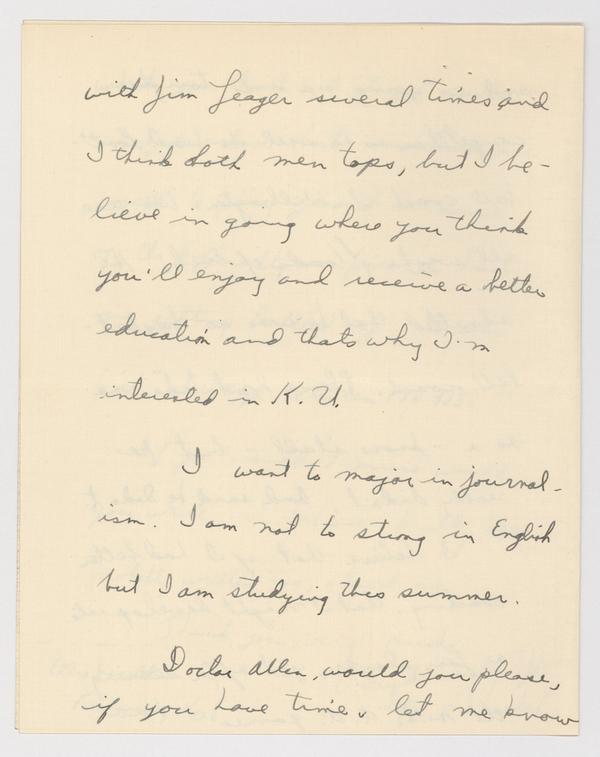 with Jim Yeager several times and
I think both men tops, but I be-
lieve in going where you think
you'll enjoy and receive a better
education and thats why I'm
interested in K. U.
I want to major in journal-
ism. I am not to strong in English
but I am studying this summer.
Doctor Allen, would you please,
if you have time, let me know